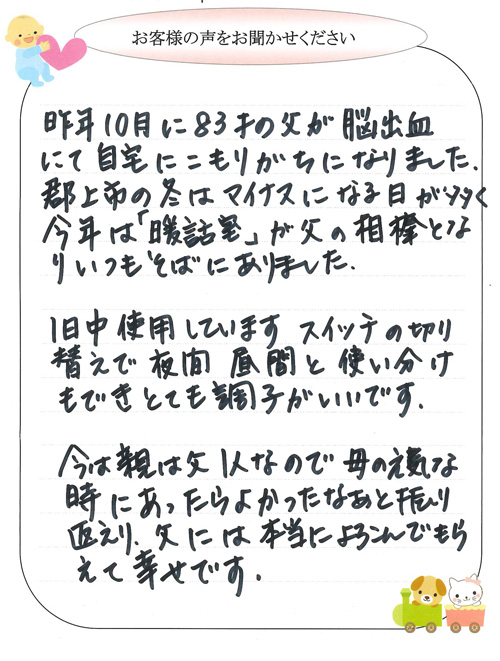 お客様の声をお聞かせください
昨年10月に83才の父が脳出血
にて自宅にこもりがちになりました.
郡上市の冬はマイナスになる日が多く
今年は「暖話室」が父の相棒とな
りいつもそばにありました.
1日中使用しています スイッチの切り
替えで夜間 昼間と使い分け
もできとても調子がいいです.
今は親は父1人なので母の元気な
時にあったらよかったなぁと振り
返えり、父には本当によろこんでもら
えて幸せです.